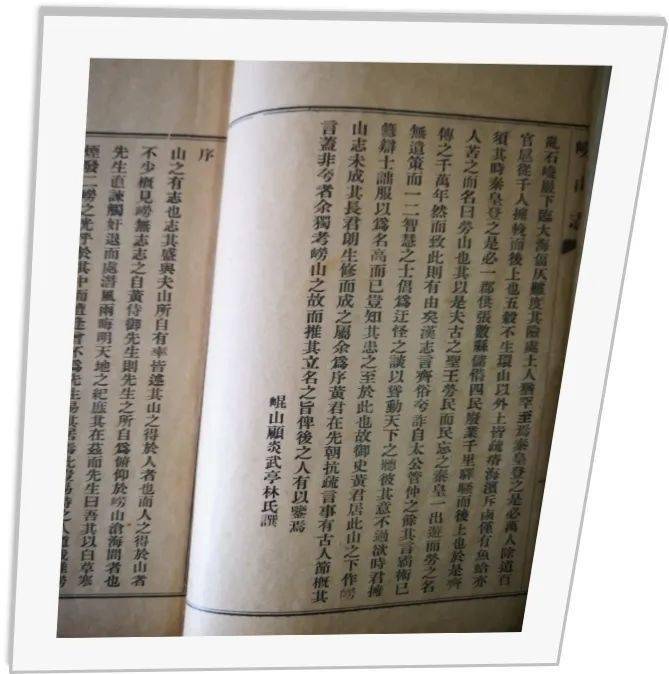 嶗山志
亂石巉巖下臨大海偪仄難度其險處土人猶罕至焉秦皇登之是必萬人除道百
官扈從千人擁挽而後上也五穀不生環山以外土皆疏瘠海濱斥鹵僅有魚蛤亦
須其時秦皇登之是必一郡供張數縣儲偫四民廢業千里驛騷而後上也於是齊
人苦之而名曰勞山也其以是夫古之聖王勞民而民忘之秦皇一出遊而勞之名
傳之千萬年然而致此則有由矣漢志言齊俗夸詐自太公管仲之餘其言霸術已
無遺策而一二智慧之士倡為迂怪之談以聳動天下之聽彼其意不過欲時君擁
篲辯士詘服以為名高而已豈知其患之至於此也故御史黃君居此山之下作嶗
山志未成其長君朗生修而成之屬余為序黃君在先朝抗疏言事有古人節概其
言蓋非夸者余獨考嶗山之故而推其立名之旨俾後之人有以鑒焉
崐山顧炎武亭林氏譔
序
山之有志也志其盛與夫山所自有率皆述其山之得於人者也而人之得於山者
不少概見嶗無志志之自黃侍御先生則先生之所自為俯仰於嶗山滄海間者也
先生直諫觸奸退而處潛風雨晦明天地之紀庶其在茲而先生曰吾其以白草寒
煙發二嶗之光乎於其中而